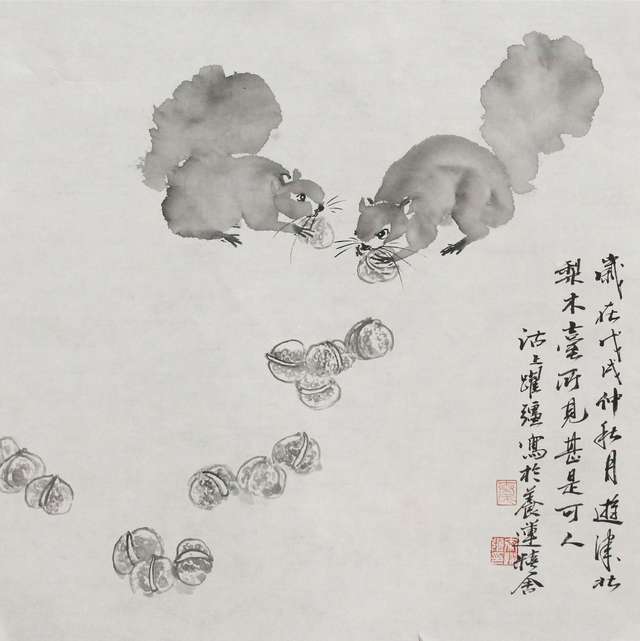 歲在戊戌仲秋月遊津北
梨木臺所見甚是可人
沽上躍疆寫於養蓮精舍